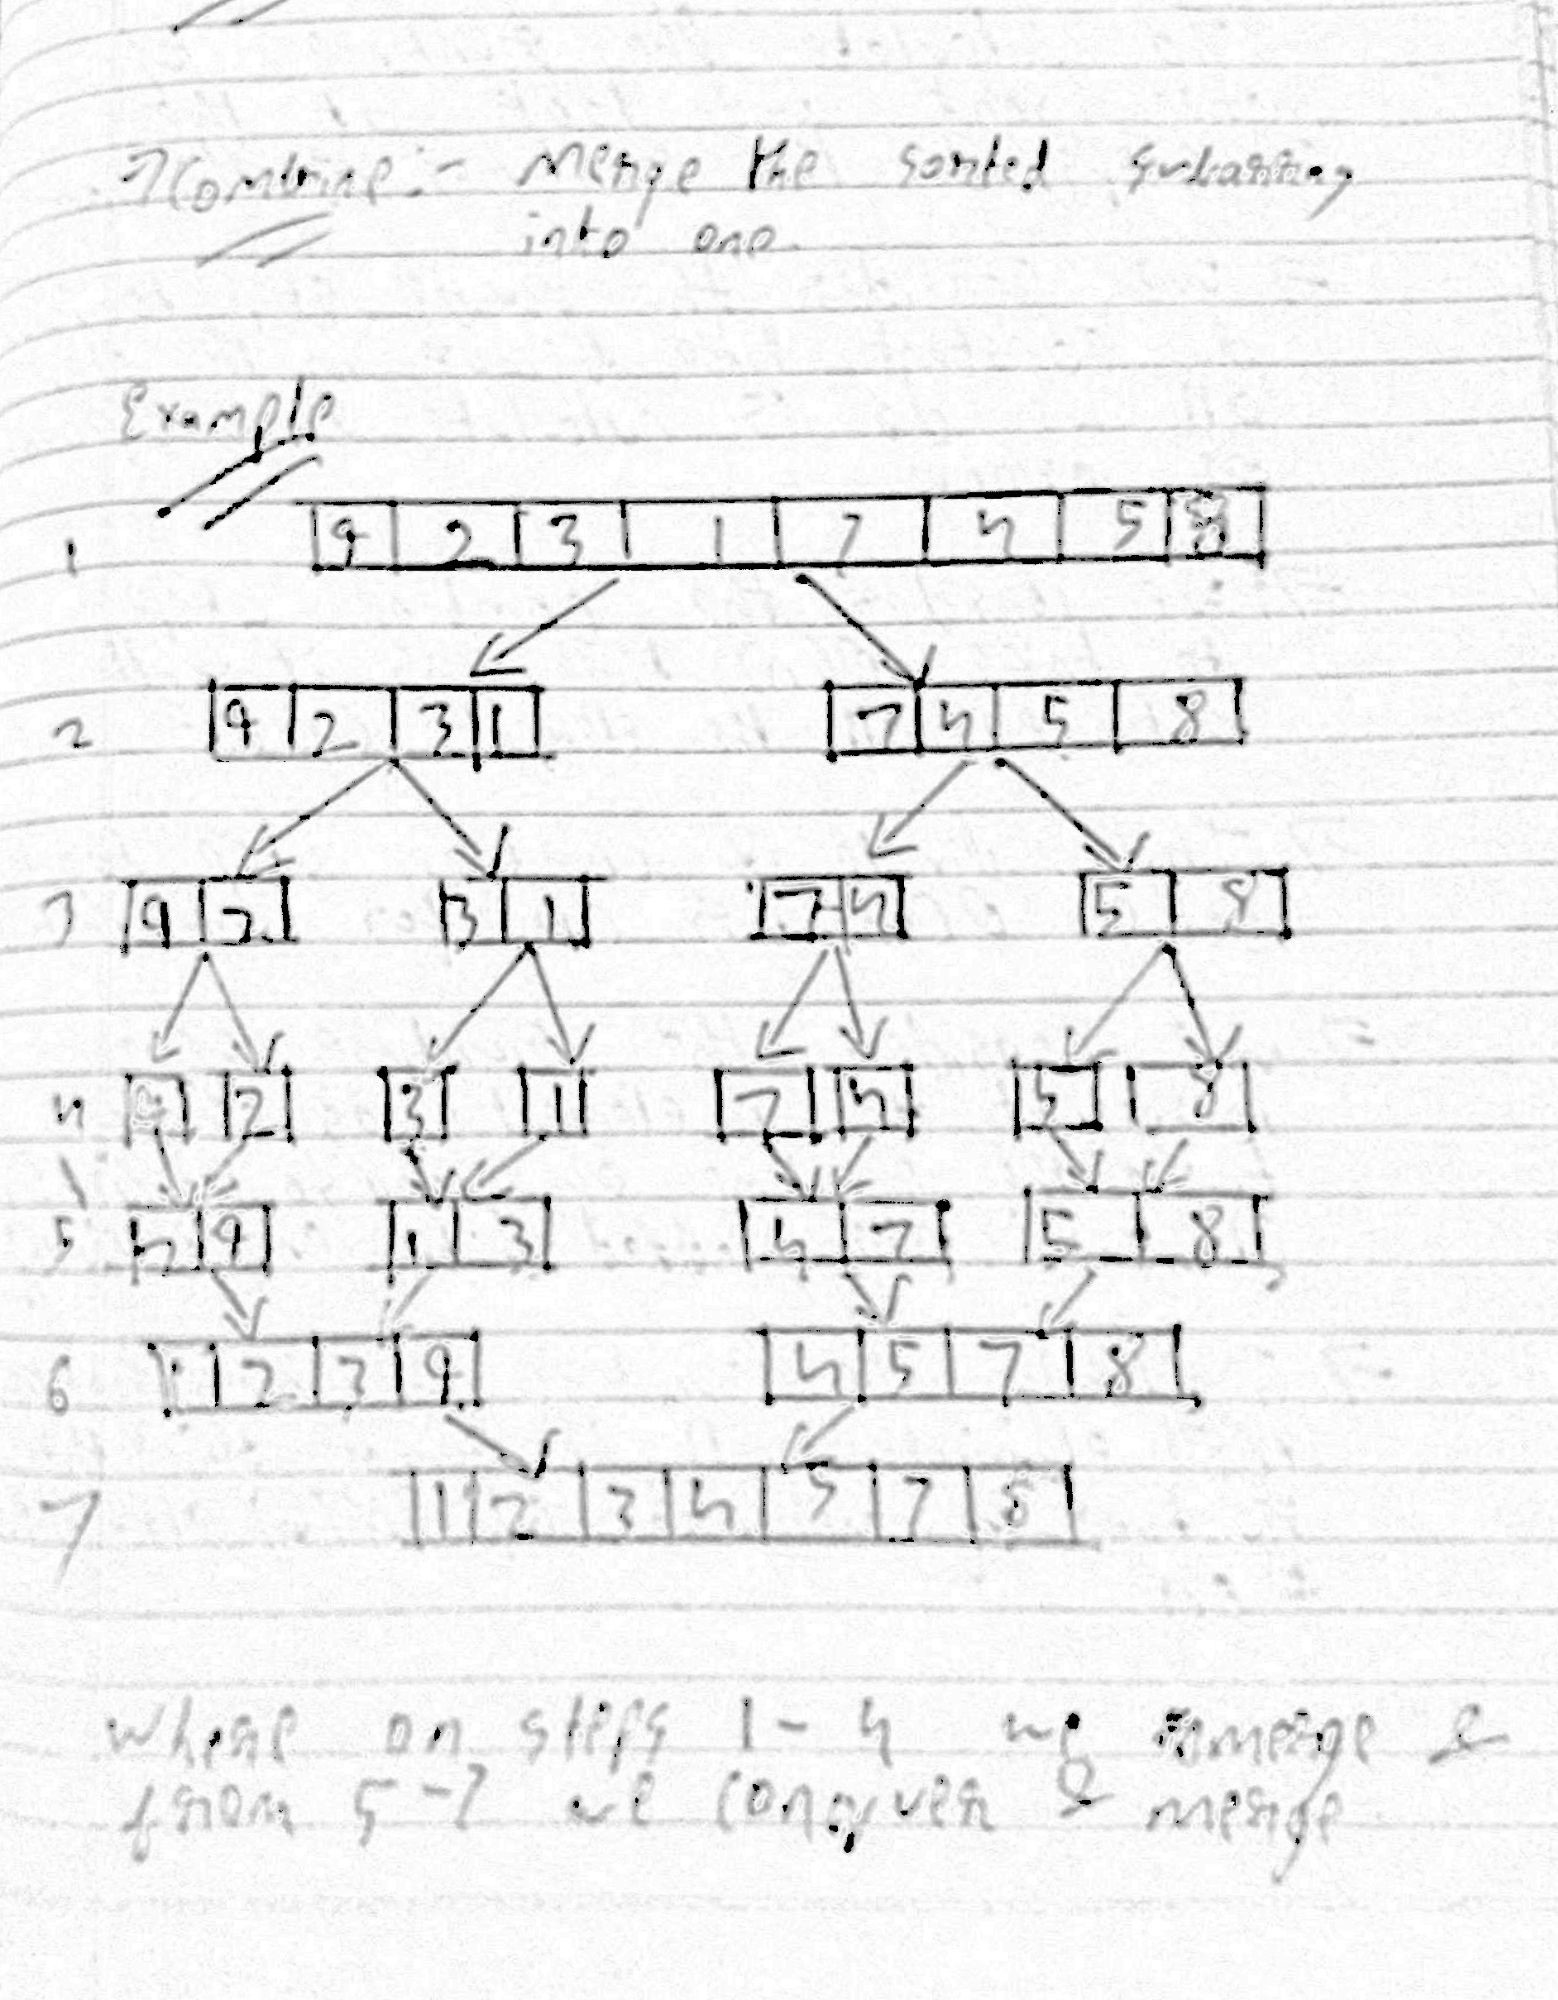 Combine:- Merge the sorted subarray
into one
Example
1 9 2 3 1 7 4 5 8
2 9 2 3 1 7 4 5 8
3 9 2 3 1 7 4 5 8
4 9 2 3 1 7 4 5 8
5 9 1 3 4 7 5 8
6 1 2 3 9 4 5 7 8
7 1 2 3 4 5 7 8
where on steps 1-4 we &
from 5-7 we conquer & merge